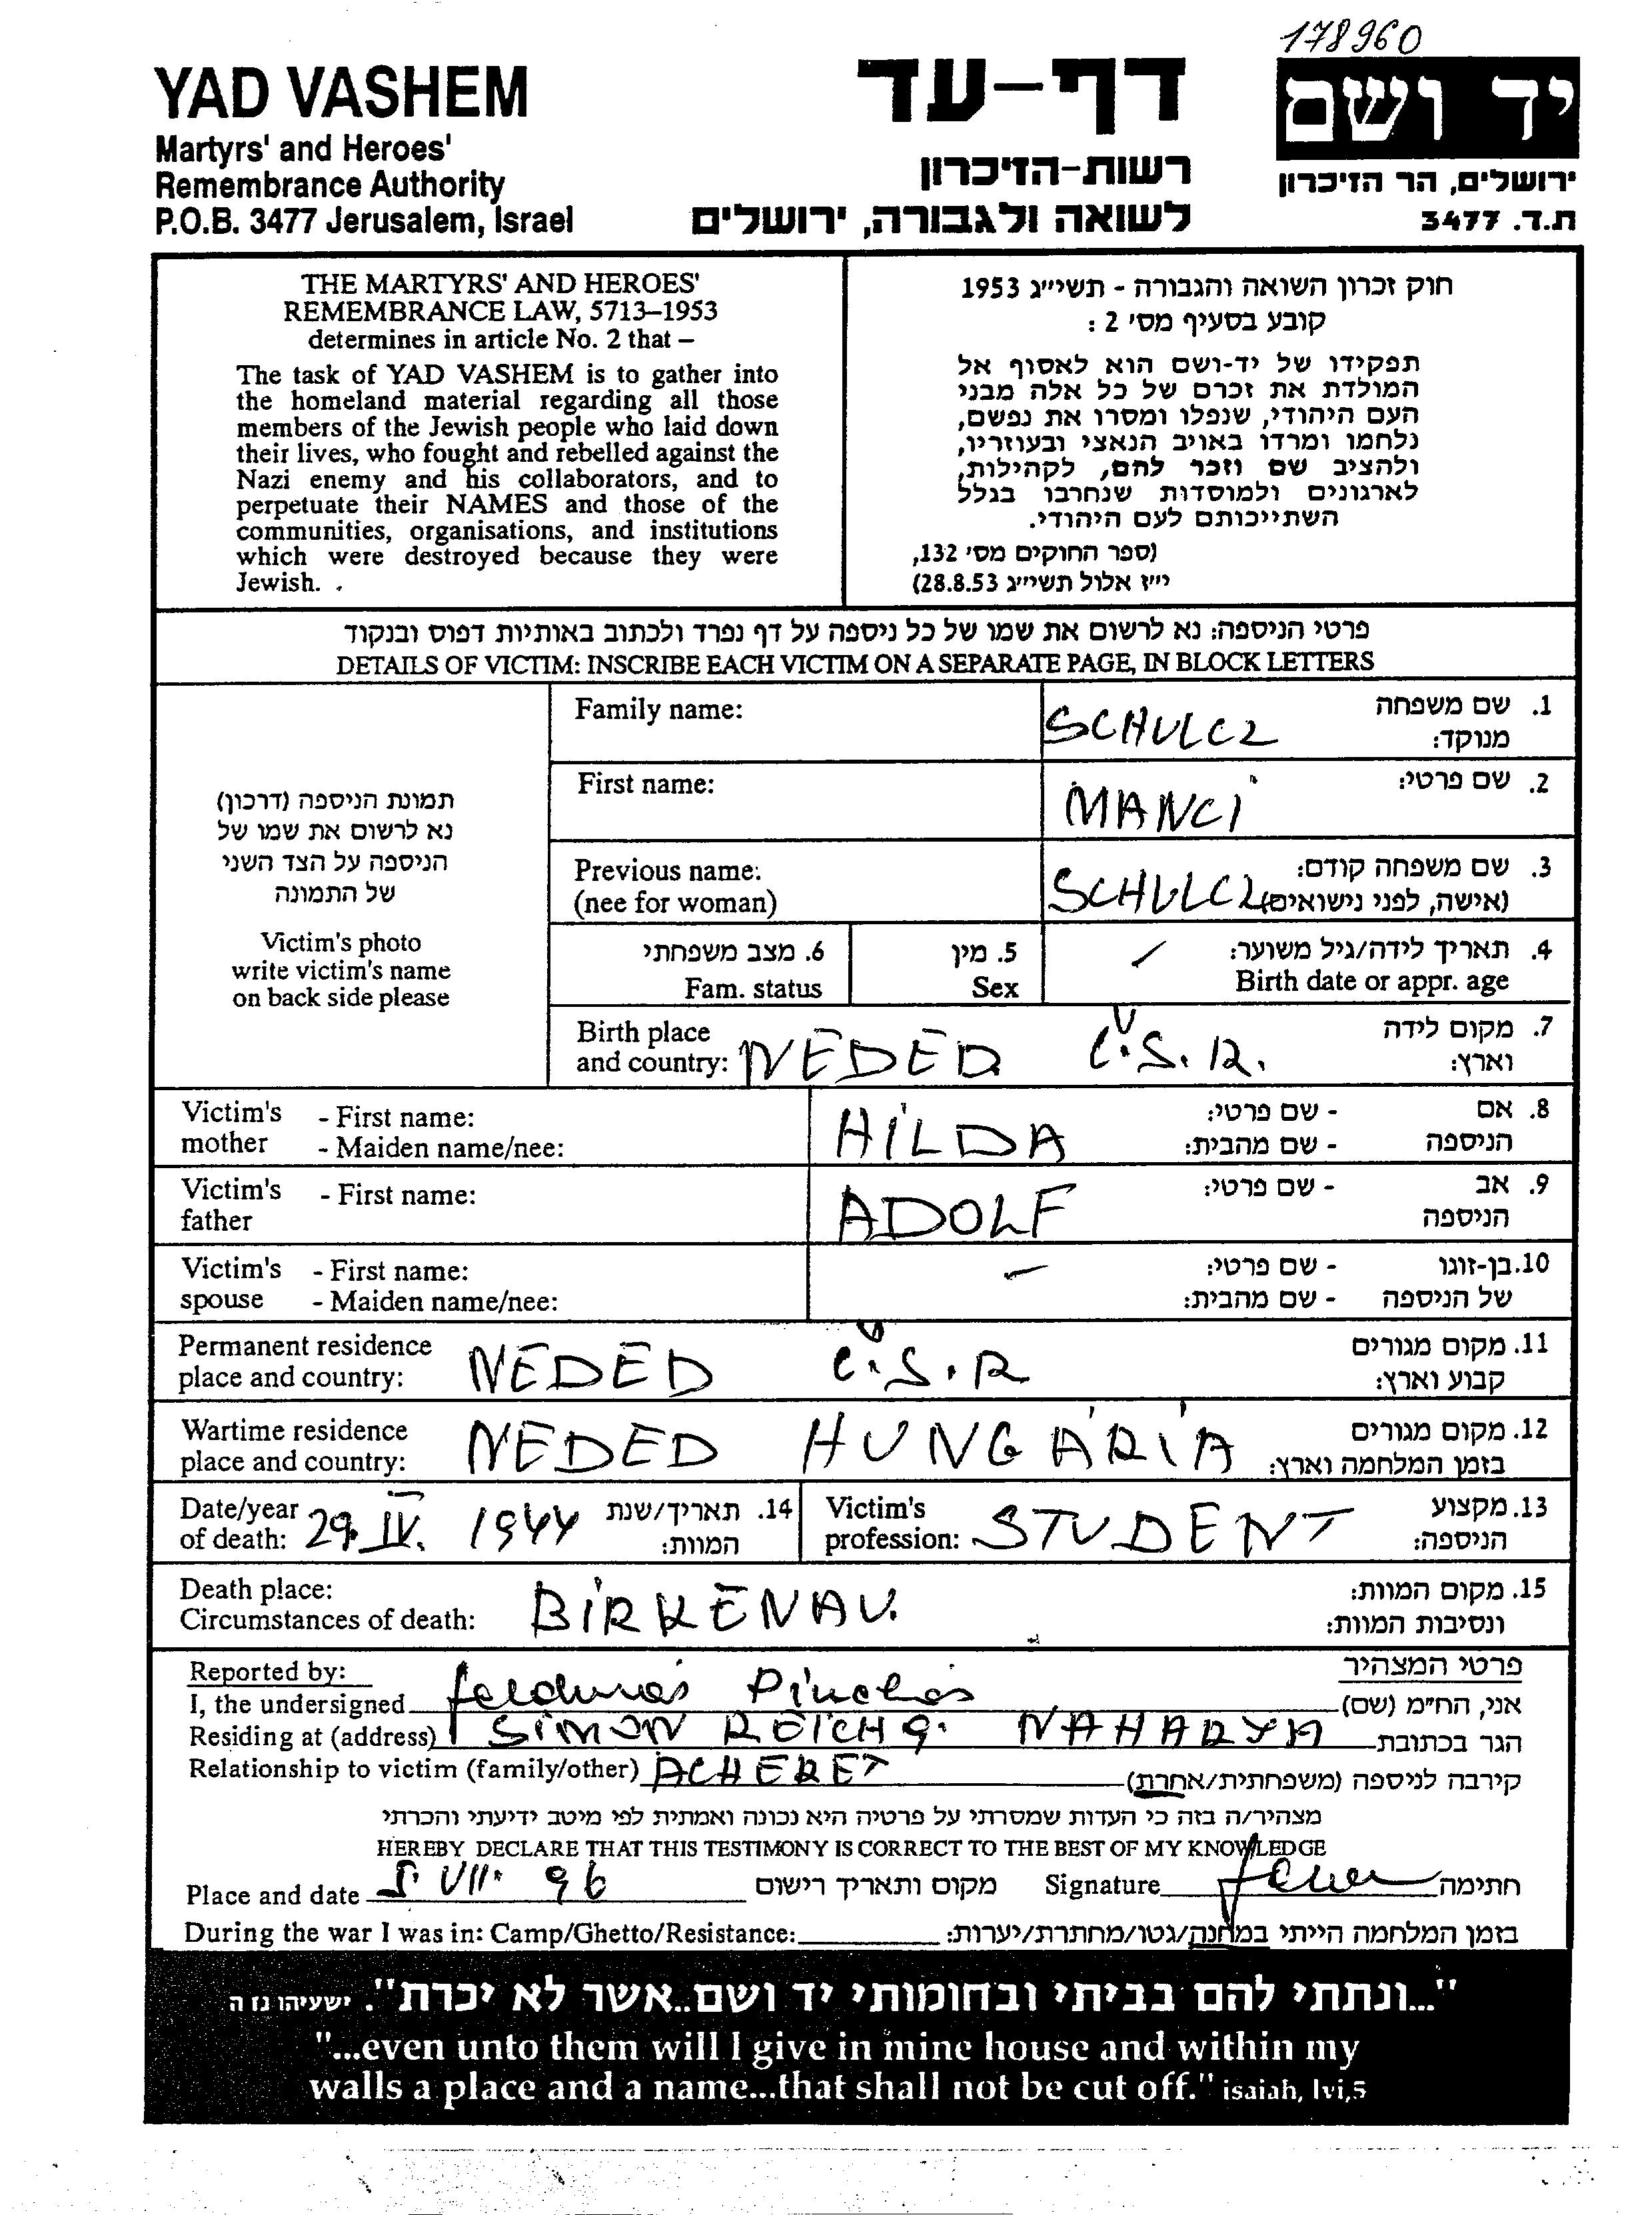 178960
YAD VASHEM
Martyrs' and Heroes'
Remembrance Authority
P.O.B. 3477 Jerusalem, Israel
דף-עד
רשות-הזיכרון
לשואה ולגבורה, ירושלים
יד ושם
ירושלים, הר הזיכרון
ת.ד. 3477
THE MARTYRS' AND HEROES'
REMEMBRANCE LAW, 5713–1953
determines in article No. 2 that –
The task of YAD VASHEM is to gather into
the homeland material regarding all those
members of the Jewish people who laid down
their lives, who fought and rebelled against the
Nazi enemy and his collaborators, and to
perpetuate their NAMES and those of the
communities, organisations, and institutions
which were destroyed because they were
Jewish.
חוק זכרון השואה והגבורה - תשי״ג 1953
קובע בסעיף מס׳ 2 :
תפקידו של יד-ושם הוא לאסוף אל
המולדת את זכרם של כל אלה מבני
העם היהודי, שנפלו ומסרו את נפשם,
נלחמו ומרדו באויב הנאצי ובעוזריו,
ולהציב שם וזכר להם, לקהילות,
לארגונים ולמוסדות שנחרבו בגלל
השתייכותם לעם היהודי.
(ספר החוקים מס׳ 132,
י״ז אלול תשי״ג 28.8.53)
פרטי הניספה: נא לרשום את שמו של כל ניספה על דף נפרד ולכתוב באותיות דפוס ובנקוד
DETAILS OF VICTIM: INSCRIBE EACH VICTIM ON A SEPARATE PAGE, IN BLOCK LETTERS
תמונת הניספה (דרכון)
נא לרשום את שמו של
הניספה על הצד השני
של התמונה
Victim's photo
write victim's name
on back side please
Family name: SCHULCZ 1. שם משפחה
מנוקד:
First name: MANCI 2. שם פרטי:
Previous name: 3. שם משפחה קודם:
(nee for woman) SCHULCZ (אישה, לפני נישואים)
6. מצב משפחתי 5. מין 4. תאריך לידה/גיל משוער:
Fam. status Sex Birth date or appr. age
Birth place 7. מקום לידה
and country: NEDED Č.S.R. וארץ:
Victim's - First name: HILDA - שם פרטי: 8. אם
mother - Maiden name/nee: - שם מהבית: הניספה
Victim's - First name: ADOLF - שם פרטי: 9. אב
father הניספה
Victim's - First name: - שם פרטי: 10. בן-זוגו
spouse - Maiden name/nee: - שם מהבית: של הניספה
Permanent residence 11. מקום מגורים
place and country: NEDED Č.S.R קבוע וארץ:
Wartime residence 12. מקום מגורים
place and country: NEDED HUNGÁRIA בזמן המלחמה וארץ:
Date/year 14. תאריך/שנת Victim's 13. מקצוע
of death: 29. IV. 1944 המוות: profession: STUDENT הניספה:
Death place: 15. מקום המוות:
Circumstances of death: BIRKENAU. ונסיבות המוות:
Reported by: פרטי המצהיר
I, the undersigned Pinchas אני, הח״מ (שם)
Residing at (address) SIMON REICH 9. NAHARYA הגר בכתובת
Relationship to victim (family/other) ACHERET קירבה לניספה (משפחתית/אחרת)
מצהיר/ה בזה כי העדות שמסרתי על פרטיה היא נכונה ואמתית לפי מיטב ידיעתי והכרתי
HEREBY DECLARE THAT THIS TESTIMONY IS CORRECT TO THE BEST OF MY KNOWLEDGE
Place and date 5. VII. 96 מקום ותאריך רישום Signature חתימה
During the war I was in: Camp/Ghetto/Resistance: בזמן המלחמה הייתי במחנה/גטו/מחתרת/יערות:
"...ונתתי להם בביתי ובחומותי יד ושם..אשר לא יכרת". ישעיהו נו ה
"...even unto them will I give in mine house and within my
walls a place and a name...that shall not be cut off." isaiah, lvi,5